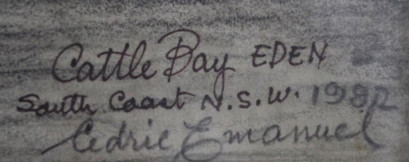 Cattle Bay EDEN
South Coast N.S.W. 1982
Cedric Emanuel